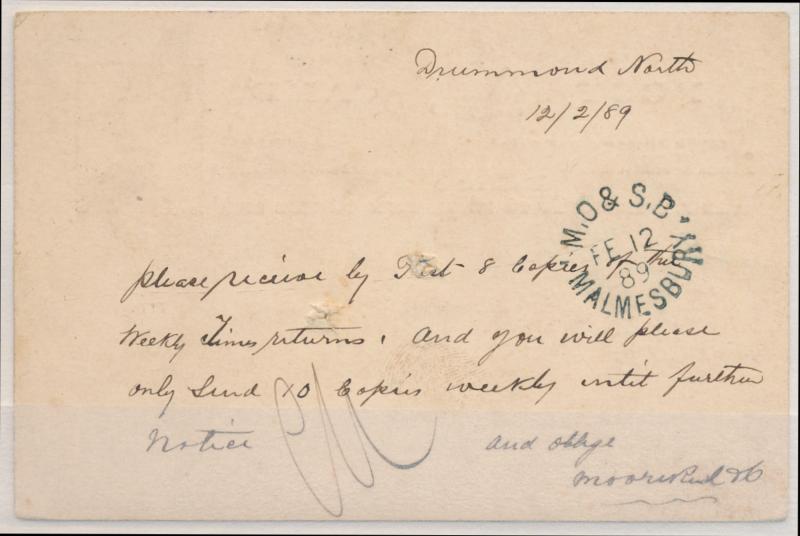 Drummond North
12/2/89
M.O & S.B
FE 12
89
MALMESBURY
please receive by Post 8 Copies of the
Weekly Times returns. And you will please
only Send 10 Copies weekly until further
Notice and oblige